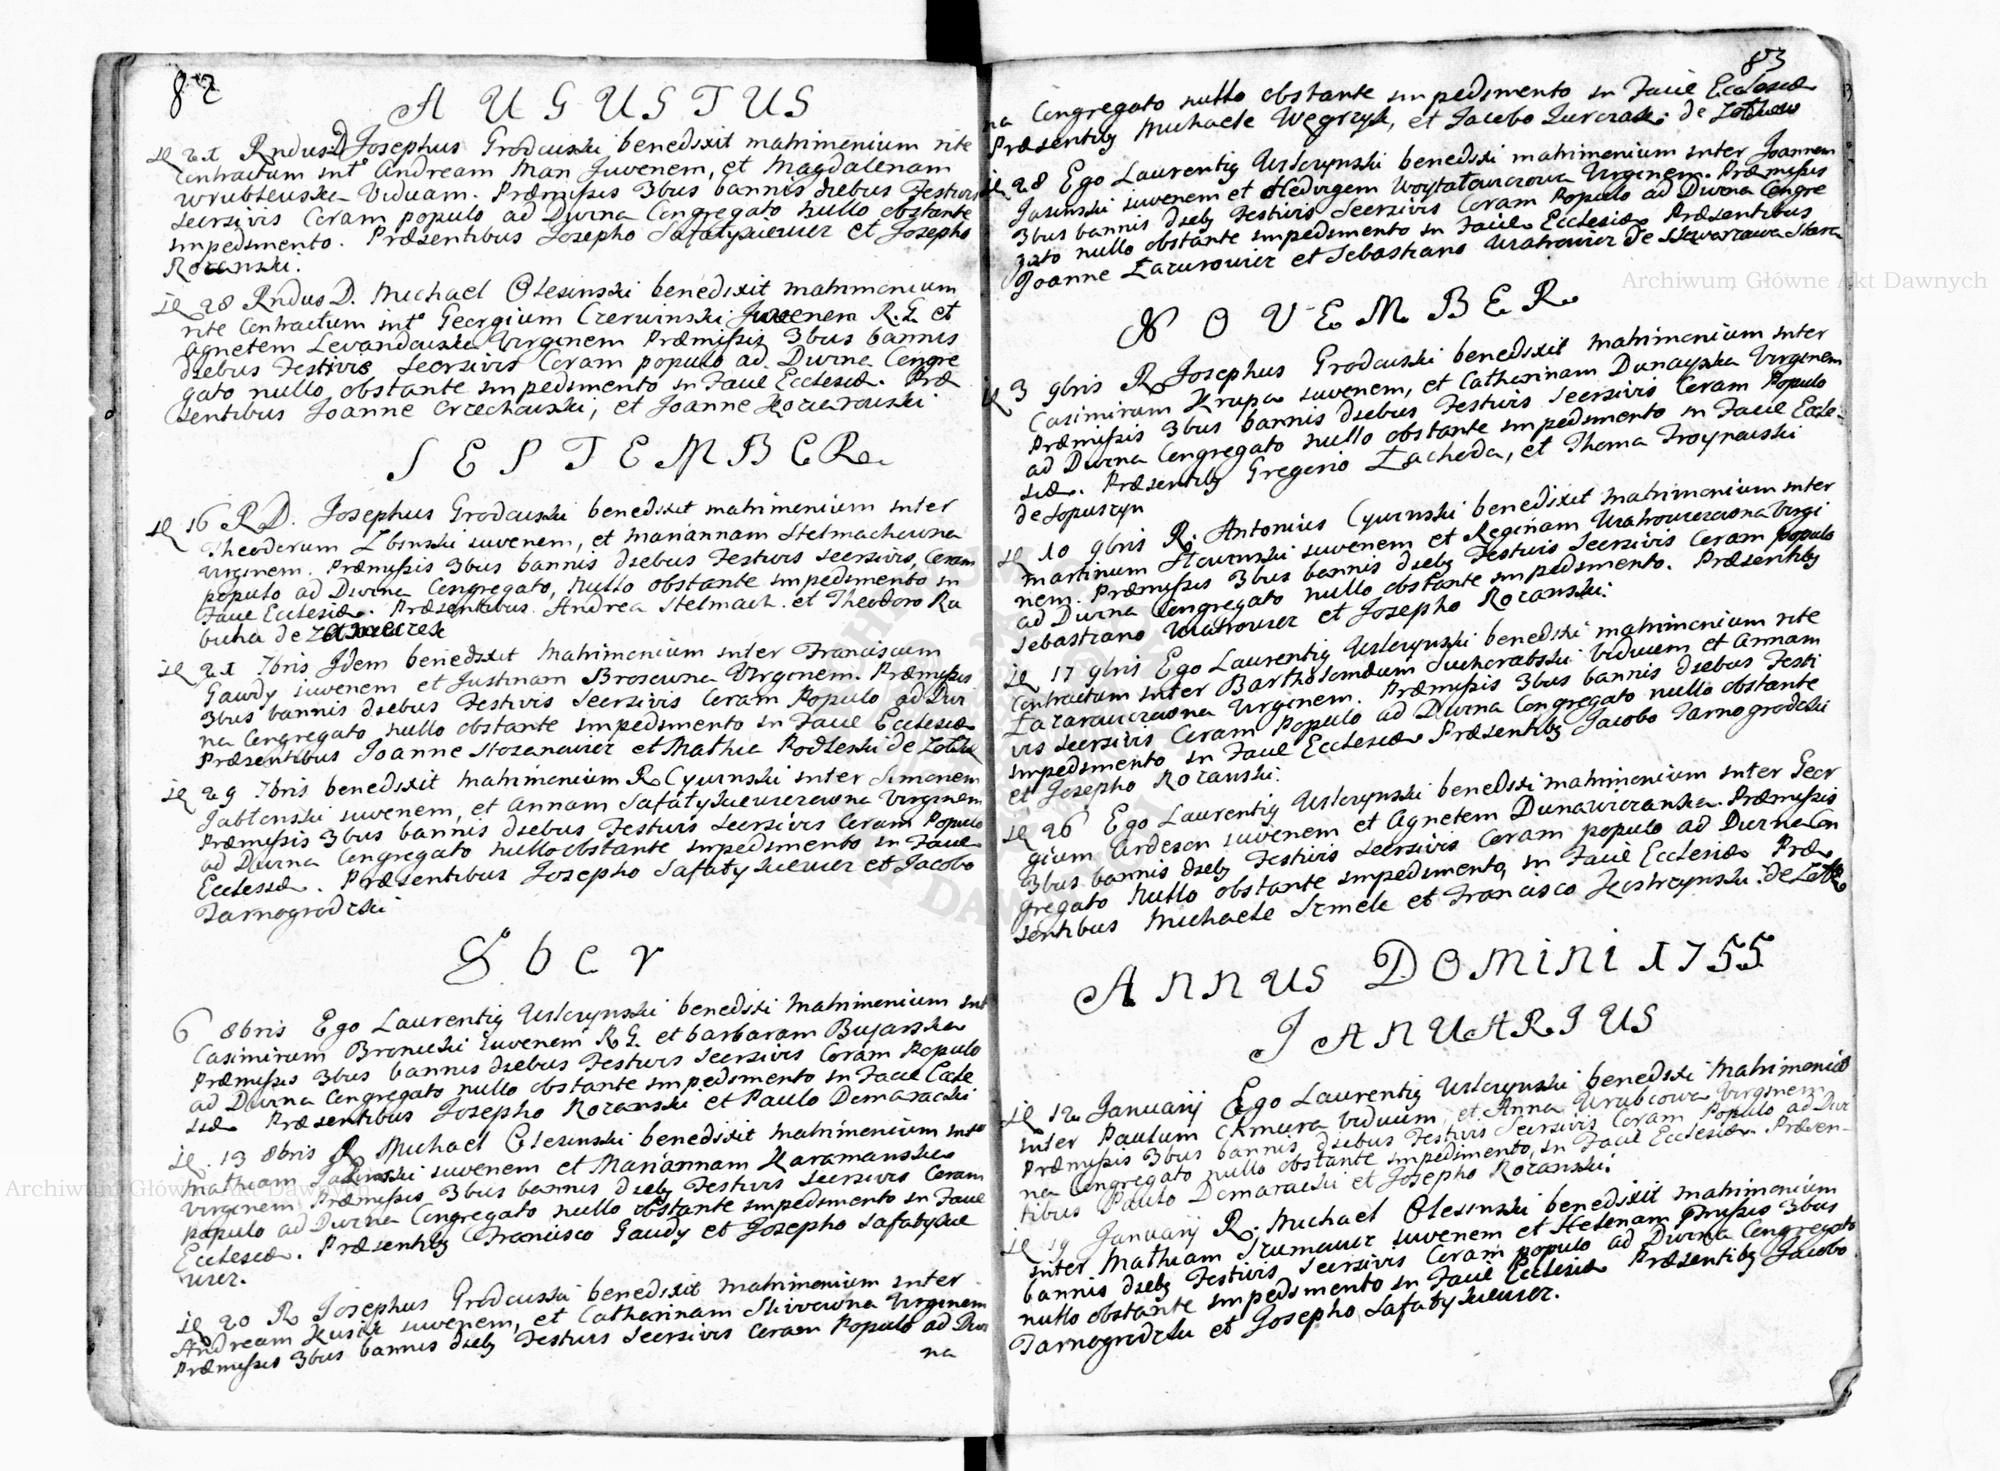 82
AUGUSTUS
21 Rndus D Josephus Grodowski benedixit matrimonium rite
contractum int Andream Man Juvenem, et Magdalenam
Wrublewska Viduam. Præmissis 3bus bannis diebus Festivis
seorsivis Coram populo ad Divina Congregato Nullo obstante
impedimento. Præsentibus Josepho Safatykiewicz et Josepho
Rozanski.
28 Rndus D. Michael Olesinski benedixit matrimonium
rite Contractum int Georgium Czerwinski Juvenem R.G. et
Agnetem Levandowska Virginem Præmissis 3bus bannis
diebus Festivis Seorsivis Coram populo ad Divina Congre
gato nullo obstante impedimento in Facie Ecclesiæ. Præ
sentibus Joanne Orzechowski, et Joanne
SEPTEMBER
16 R D. Josephus Grodowski benedixit matrimonium inter
Theodorum Zbinski iuvenem, et Mariannam Stelmachowna
Virginem. Præmissis 3bus bannis diebus Festivis seorsivis, Coram
populo ad Divina Congregato, Nullo obstante impedimento in
Facie Ecclesiæ. Præsentibus Andrea Stelmach et Theodoro Ra
buha de
21 7bris Idem benedixit Matrimonium inter Franciscum
Gawdy iuvenem et Justinam Brosowna Virginem. Præmissis
3bus bannis diebus Festivis Seorsivis Coram Populo ad Divi
na Congregato nullo obstante impedimento in Facie Ecclesiæ
Præsentibus Joanne et Mathia Podleski de
29 7bris benedixit matrimonium R Cywinski inter Simonem
Jablonski iuvenem, et Annam Safatykiewiczowna Virginem
Præmissis 3bus bannis diebus Festivis Seorsivis Coram Populo
ad Divina Congregato nullo obstante impedimento in Facie
Ecclesiæ. Præsentibus Josepho Safatykiewicz et Jacobo
Tarnogrodzki
8ber
6 8bris Ego Laurentig Ustrzynski benedixi Matrimonium int
Casimirum Broniecki Iuvenem R G. et barbaram Bujarska
Præmissis 3bus bannis diebus Festivis Seorsivis Coram Populo
ad Divina Congregato nullo obstante impedimento in Facie Eccle
siæ Præsentibus Josepho Rozanski et Paulo Domaracki
13 8bris R Michael Olesinski benedixit matrimonium inter
Mathiam iuvenem et Mariannam Karamanska
virginem Præmissis 3bus bannis dieb Festivis Seorsivis Coram
populo ad Divina Congregato nullo obstante impedimento in Facie
Ecclesiæ. Præsentib Francisco Gawdy et Josepho Safatykie
wicz.
20 R Josephus Grodowski benedixit matrimonium inter
Andream Kusik iuvenem, et Catharinam Virginem
Præmissis 3bus bannis dieb Festivis Seorsivis Coram Populo ad Divi
na
83
na Congregato nullo obstante impedimento in Facie Ecclesiæ
Præsentib Michaele Węgrzyk, et Jacobo Zurczak de
28 Ego Laurentig Ustrzynski benedixi matrimonium inter Joannem
Jasinski iuvenem et Hedvigem Woytalowiczowa Virginem. Præmissis
3bus bannis dieb Festivis Seorsivis Coram Populo ad Divina Congre
gato nullo obstante impedimento in Facie Ecclesiæ Præsentibus
Joanne Lazurowicz et Sebastiano de
NOVEMBER
3 9bris R Josephus Grodowski benedixit matrimonium inter
Casimirum Krupa iuvenem, et Catharinam Dunayska Virginem
Præmissis 3bus bannis diebus Festivis Seorsivis Coram Populo
ad Divina Congregato nullo obstante impedimento in Facie Eccle-
siæ. Præsentib Gregorio Lachoda, et Thoma Troynowski
de Lopuszyn
10 9bris R. Antonius Cywinski benedixit matrimonium inter
Martinum iuvenem et Reginam Virgi
nem. Præmissis 3bus bannis dieb Festivis Seorsivis Coram populo
ad Divina Congregato nullo obstante impedimento. Præsentib
Sebastiano et Josepho Rozanski.
17 9bris Ego Laurentig Ustrzynski benedixi matrimonium rite
Contractum inter Bartholomæum Viduum et Annam
Lazarowiczowna Virginem. Præmissis 3bus bannis diebus Festi
vis Seorsivis Coram Populo ad Divina Congregato nullo obstante
impedimento in Facie Ecclesiæ Præsentib Jacobo Tarnogrodzki
et Josepho Rozanski.
26 Ego Laurentig Ustrzynski benedixi matrimonium inter Geor
gium iuvenem et Agnetem Præmissis
3bus bannis dieb Festivis Seorsivis Coram populo ad Divina Con
gregato Nullo obstante impedimento, in Facie Ecclesiæ Præ
sentibus Michaele et Francisco Kostrzynski de
ANNUS DOMINI 1755
JANUARIUS
12 Januarij Ego Laurentig Ustrzynski benedixi Matrimonio
inter Paulum Chmura viduum, et Anna Wrubcowa Virginem
Præmissis 3bus bannis diebus Festivis Seorsivis Coram Populo ad Divi
na Congregato nullo obstante impedimento, in Facie Ecclesiæ. Præsen-
tibus Paulo Domaracki et Josepho Rozanski.
19 Januarij R. Michael Olesinski benedixit matrimonium
inter Mathiam iuvenem et Helenam Pmissis 3bus
bannis dieb Festivis Seorsivis Coram populo ad Divina Congregato
nullo obstante impedimento in Facie Ecclesiæ Præsentib Jacobo
Tarnogrodzki et Josepho Safatykiewicz.
Archiwum Główne Akt Dawnych
Archiwum Główne Akt Dawnych